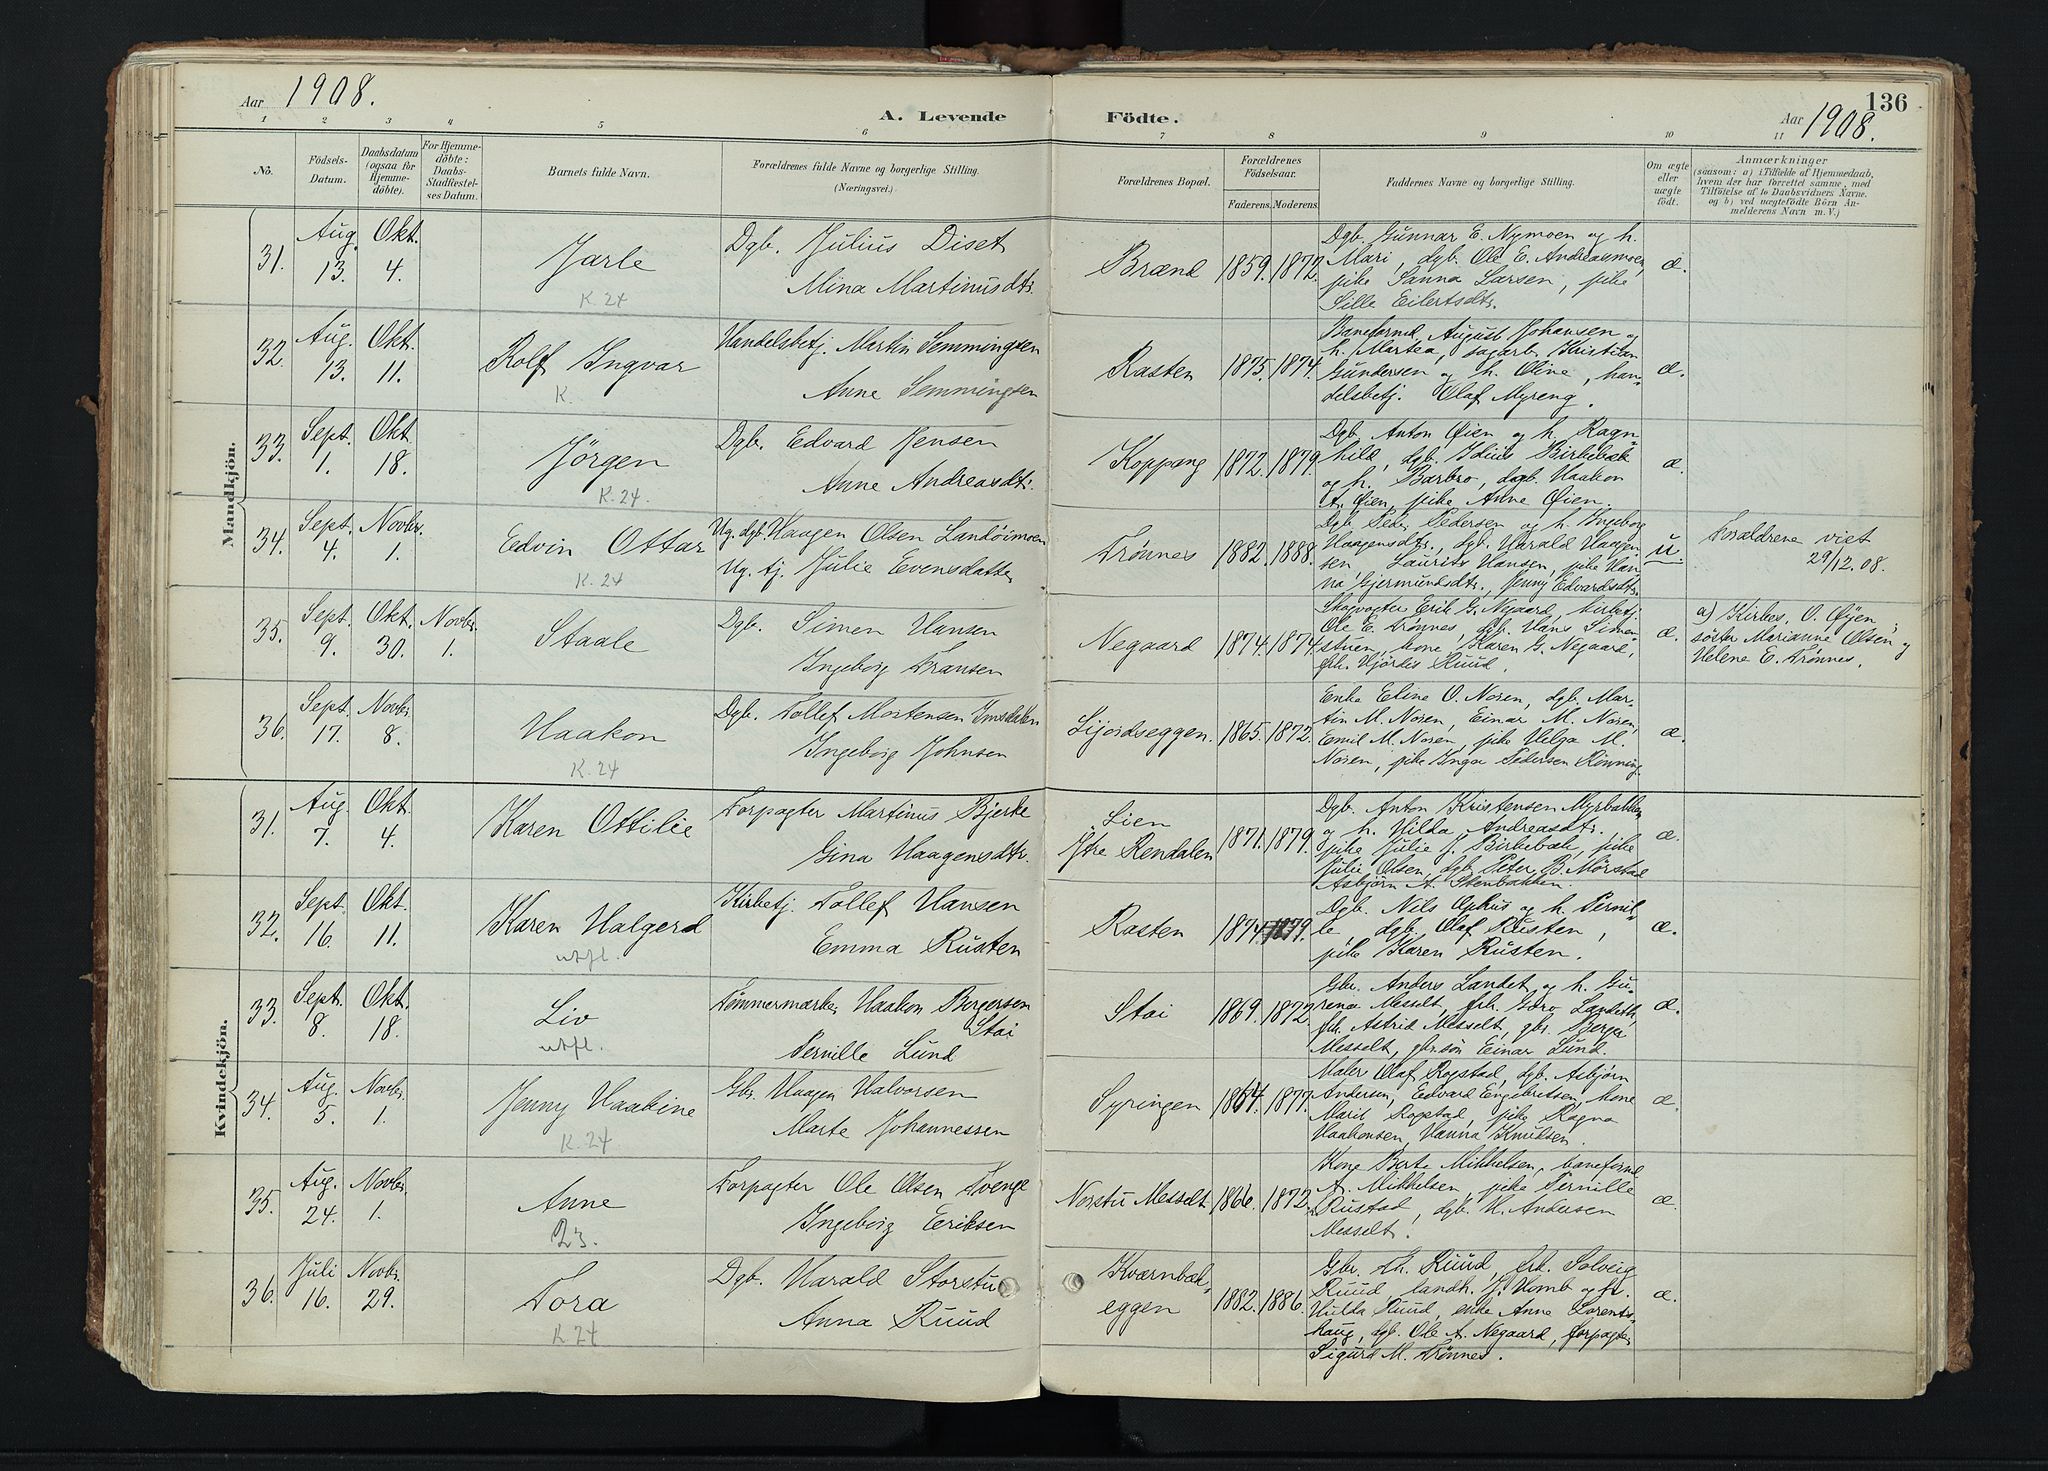 Aar 1908.
A. Levende Födte.
136
Aar 1908.
1 2 3 4 5 6 7 8 9 10 11
No.
Födsels-Datum.
Daabsdatum (ogsaa for Hjemme-döbte).
For Hjemme-döbte: Daabs-Stadfæstel-ses Datum.
Barnets fulde Navn.
Forældrenes fulde Navne og borgerlige Stilling.
(Næringsvei.)
Forældrenes Bopæl.
Forældrenes Födselsaar.
Faderens. Moderens.
Faddernes Navne og borgerlige Stilling.
Om ægte eller uægte födt.
Anmærkninger
(saasom: a) i Tilfælde af Hjemmedaab,
hvem der har forrettet samme, med
Tilföielse af to Daabsvidners Navne.
og b) ved uægtefödte Börn An-
melderens Navn m. V.)
Mandkjön.
31. Aug. 13. Okt. 4. Jarle K. 24
Dgb. Julius Diset
Mina Martinusdtr.
Brænd 1859. 1872.
Dgb. Gunnar E. Nymoen og h.
Mari, dgb. Ole E. Andreasmoen,
pike Sanna Larsen, pike
Sille Eilertsdtr.
æ.
32. Aug. 13. Okt. 11. Rolf Ingvar K.
Handelsbetj. Martin Semmingsen
Anne Semmingsen
Rasten 1875. 1874.
Baneformd August Johansen og
h. Martea, sagarb. Kristian
Gundersen og h. Oline, han-
delsbetj. Olaf Myreng.
æ.
33. Sept. 1. Okt. 18. Jørgen K. 24.
Dgb. Edvard Jensen
Anne Andreasdtr.
Koppang 1872. 1879.
Dgb. Anton Øien og h. Ragn-
hild, dgb. Idius Birkebæk
og h. Barbro, dgb. Haakon
A. Øien, pike Anne Øien.
æ.
34. Sept. 4. Novbr. 1. Edvin Ottar K. 24
Ug. dgb. Haagen Olsen Landøimoen
Ug. tj. Julie Evensdatter
Trønnes 1882. 1888.
Dgb. Peder Pedersen og h. Ingeborg
Haagensdtr., dgb. Harald Haagen-
sen, Laurits Hansen, pike Han-
na Gjermundsdtr., Jenny Edvardsdtr.
u.
Forældrene viet
29/12.08.
35. Sept. 9. Okt. 30. Novbr. 1. Staale
Dgb. Simen Hansen
Ingeborg Fransen
Negaard 1874. 1874
Skogvogter Erik G. Negaard, kirketj.
Ole E. Trønnes, dgb. Hans Simen-
stuen, kone Karen G. Negaard,
frk. Hjördis Ruud.
æ.
a) Kirkes. O. Øyen;
söster Marianne Olsen og
Helene E. Trønnes.
36. Sept. 17. Novbr. 8. Haakon K. 24
Dgb. Tollef Mortensen Imsdalen
Ingeborg Johnsen
Lijordseggen. 1865. 1872.
Enke Eline O. Noren, dgb. Mar-
tin M. Noren, Einar M. Noren,
Emil M. Noren, pike Helga M.
Noren, pike Inga Pedersen Rønning.
æ.
Kvindekjön.
31. Aug. 7. Okt. 4. Karen Ottilie
Forpagter Martinus Bjerke
Gina Haagensdtr.
Lien
Ytre Rendalen 1871. 1879.
Dgb. Anton Kristensen Myrbakken
og h. Hilda Andreasdtr.
pike Julie J. Birkebæk, pike
Julie Olsen, dgb. Peter B. Mørstad
Asbjörn A. Stenbakken.
æ.
32. Sept. 16. Okt. 11. Karen Halgerd utfl.
Kirketj. Tollef Hansen
Emma Rusten
Rasten 1874. 1879.
Dgb. Nils Ophus og h. Pernil-
le, dgb. Olaf Rusten,
pike Karen Rusten.
æ.
33. Sept. 8. Okt. 18. Liv utfl.
Tømmermærker Haakon Bergersen
Stai
Pernille Lund
Stai 1869. 1872.
Gbr. Anders Landet og h. Gu-
rena Messelt, frk. Goro Landeth,
frk. Astrid Messelt, gbr. Berger
Messelt, gbr.søn Einar Lund.
æ.
34. Aug. 5. Novbr. 1. Jenny Haakine K. 24
Gbr. Haagen Halvorsen
Marte Johannessen
Syringen 1864. 1877.
Maler Olaf Rogstad, dgb. Asbjörn
Andersen, Edvard Engebretsen, kone
Marit Rogstad, pike Ragna
Haakonsen, Hanna Knudsen.
æ.
35. Aug. 24. Novbr. 1. Anne 23.
Forpagter Ole Olsen Tvenge
Ingeborg Eriksen
Norstu Messelt 1866. 1872.
Kone Berte Mikkelsen, baneformd
A. Mikkelsen, pike Pernille
Rustad, dgb. H. Andersen
Messelt.
æ.
36. Juli 16. Novbr. 29. Tora K 24
Dgb. Harald Storstu
Anna Ruud
Kværnbæk-
eggen 1882. 1886.
Gbr. Th. Ruud, frk. Solveig
Ruud, landh. J. Homb og fr.
Hulda Ruud, enke Anne Lorents-
haug, dgb. Ole A. Negaard, forpagter
Sigurd M. Trønnes.
æ.